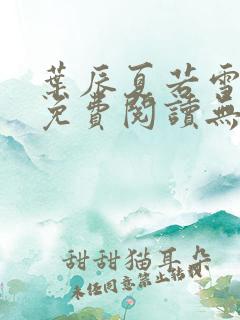 葉辰夏若雪
免費閱讀無
甜甜猫耳朵
未经同意禁止转载